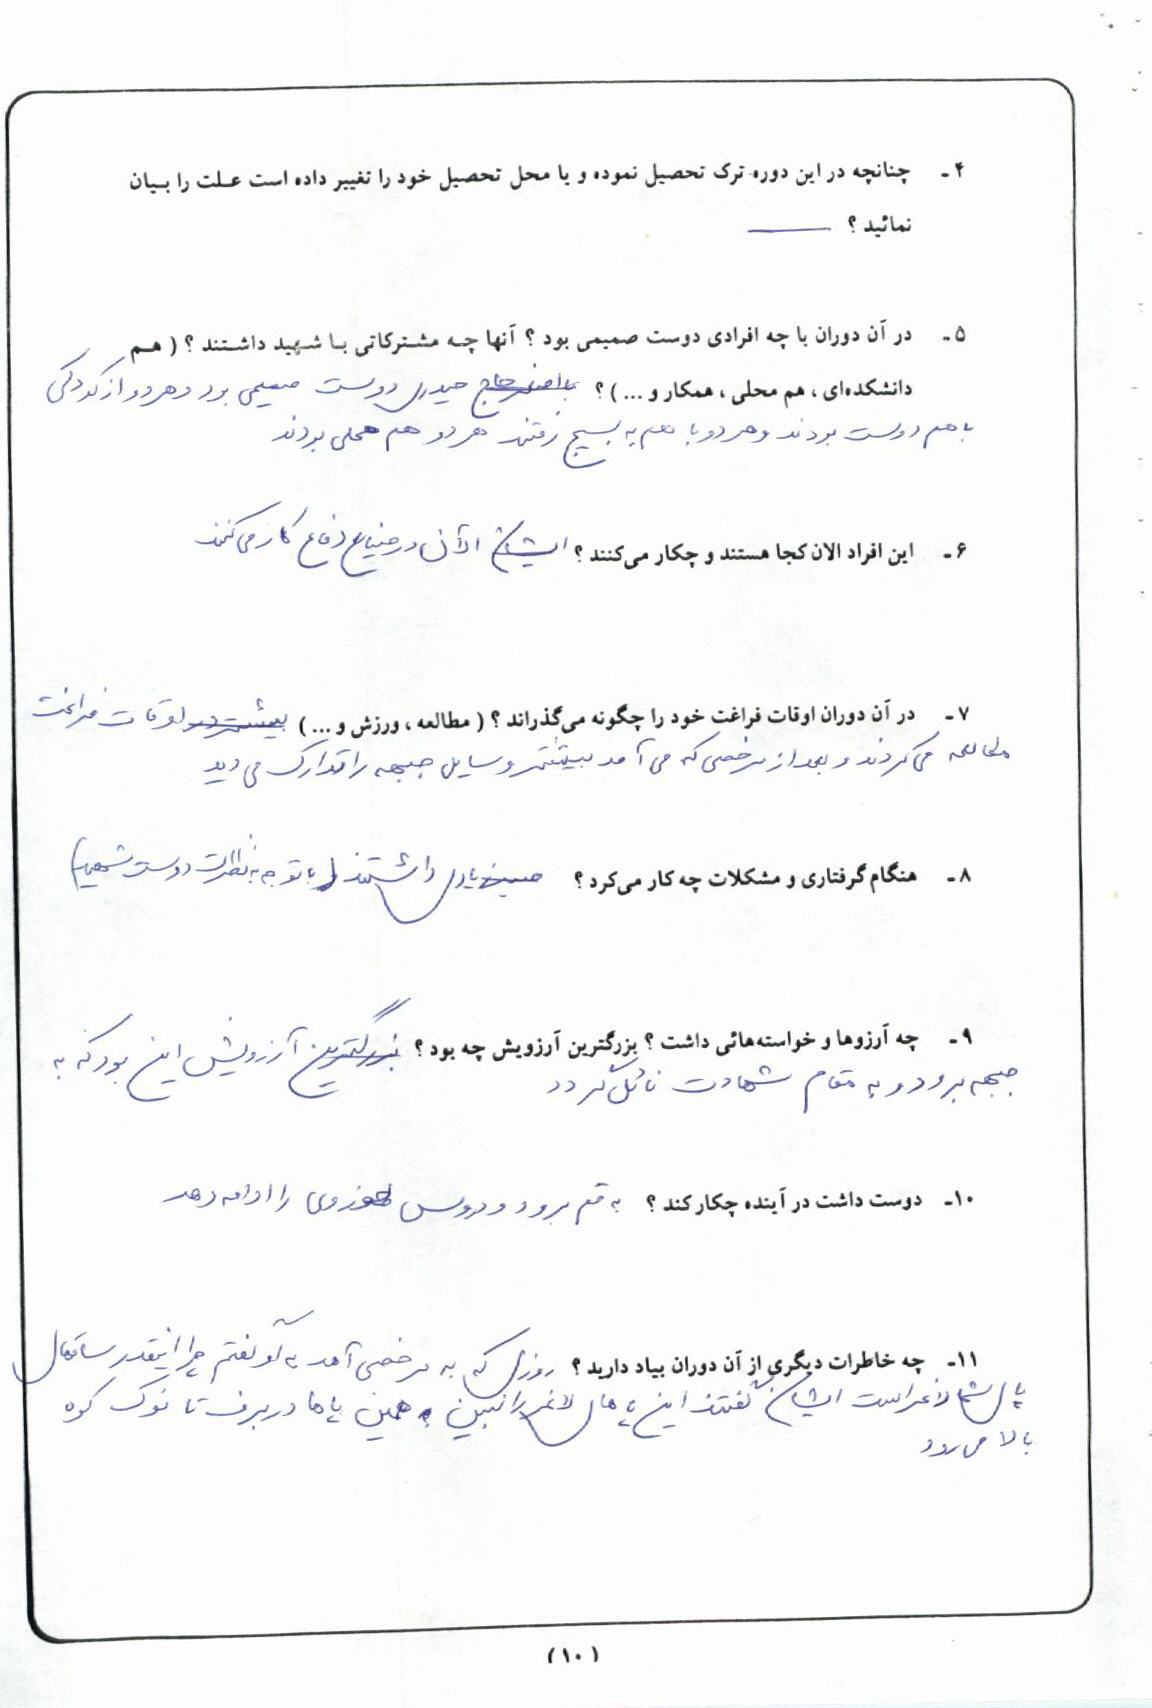 ۴ـ چنانچه در این دوره ترک تحصیل نموده و یا محل تحصیل خود را تغییر داده است عـلت را بـیان
نمائید ؟ ـــــــ
۵ـ در آن دوران با چه افرادی دوست صمیمی بود ؟ آنها چـه مشـترکاتی بـا شـهید داشـتند ؟ ( هـم
دانشکده‌ای ، هم محلی ، همکار و ... ) ؟ حیدری دوست صمیمی بود و هر دو از کودکی
با هم دوست بودند و هر دو با هم به بسیج رفتند هر دو هم محلی بودند
۶ـ این افراد الان کجا هستند و چکار می‌کنند ؟ ایشان الآن در صنایع دفاع کار می‌کنند
۷ـ در آن دوران اوقات فراغت خود را چگونه می‌گذراند ؟ ( مطالعه ، ورزش و ... ) اوقات فراغت
مطالعه می‌کردند و بعد از مرخصی که می‌آمد بیشتر وسایل جبهه را تدارک می دید
۸ـ هنگام گرفتاری و مشکلات چه کار می‌کرد ؟ داشتند ( با توجه به نظرات دوست شهید )
۹ـ چه آرزوها و خواسته‌هائی داشت ؟ بزرگترین آرزویش چه بود ؟ بزرگترین آرزویش این بود که به
جبهه برود و به مقام شهادت نائل گردد
۱۰ـ دوست داشت در آینده چکار کند ؟ به قم برود و دروس حوزوی را ادامه دهد
۱۱ـ چه خاطرات دیگری از آن دوران بیاد دارید ؟ روزی که به مرخصی آمد به او گفتم چرا اینقدر ساقهای
پای شما لاغر است ایشان گفتند این پاهای لاغر را نبین همین پاها در برف تا نوک کوه
بالا می‌رود
( ۱۰ )